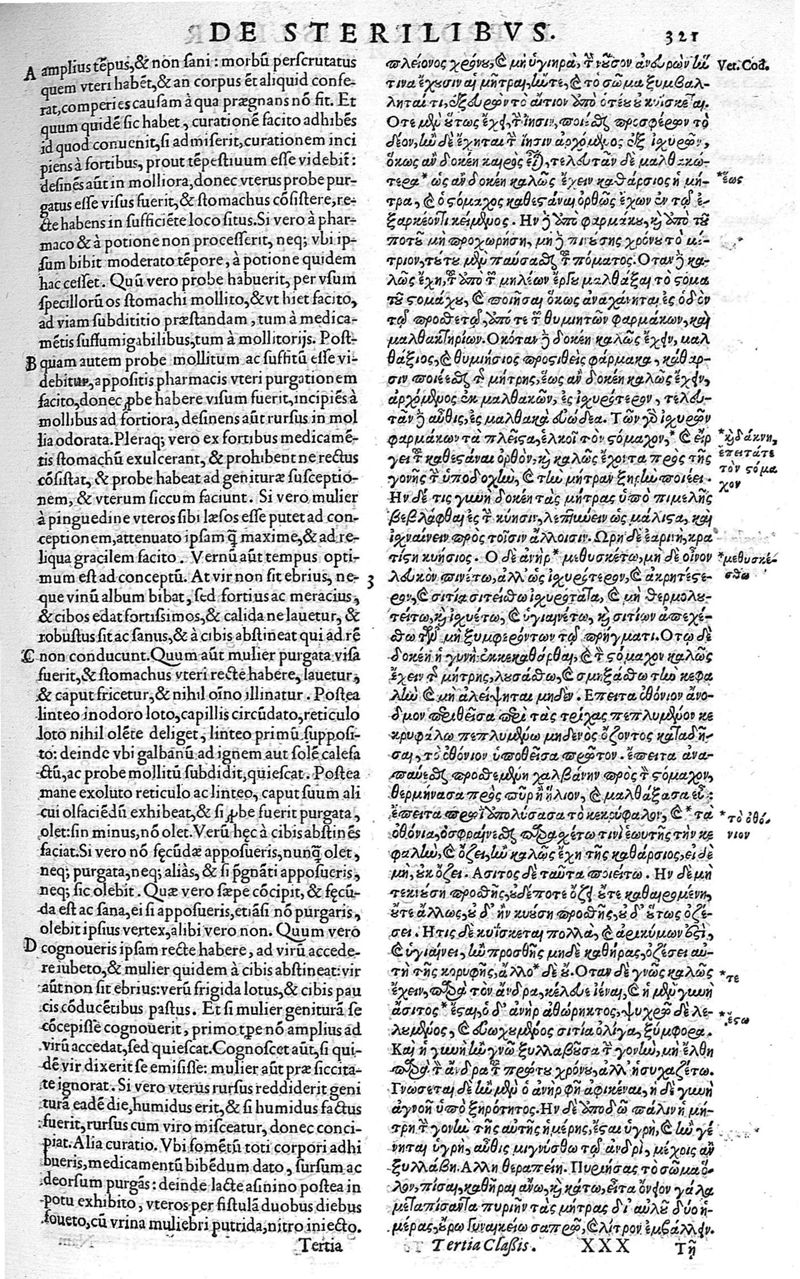 DE STERILIBVS. 321
A amplius tẽpus,& non sani: morbũ perscrutatus
quem vteri habẽt,& an corpus ẽt aliquid confe-
rat,comperies causam à qua prægnans nõ fit. Et
quum quidẽ sic habet, curationẽ facito adhibẽs
id quod conuenit,si admiserit,curationem inci
piẽs à fortibus, prout tẽpestiuum esse videbit:
desinẽs aũt in molliora,donec vterus probe pur-
gatus esse visus fuerit,& stomachus cõsistere,re-
cte habens in sufficiẽte loco situs.Si vero à phar-
maco & à potione non processerit, neq; vbi ip-
sum bibit moderato tẽpore, à potione quidem
hac cesset. Quũ vero probe habuerit, per vsum
specillorũ os stomachi mollito,& vt hiet facito,
ad viam subdititio præstandam, tum à medica-
mẽtis suffumigabilibus,tum à mollitorijs. Post-
B quam autem probe mollitum ac suffitũ esse vi-
debitur, appositis pharmacis vteri purgationem
facito,donec ꝓbe habere visum fuerit,incipiẽs à
mollibus ad fortiora, desinens aũt rursus in mol
lia odorata.Pleraq; vero ex fortibus medicamẽ-
tis stomachũ exulcerant, & prohibent ne rectus
cõsistat, & probe habeat ad genituræ susceptio-
nem, & vterum siccum faciunt. Si vero mulier
à pinguedine vteros sibi læsos esse putet ad con-
ceptionem,attenuato ipsam q̃ maxime,& ad re-
liqua gracilem facito. Vernũ aũt tempus opti-
mum est ad conceptũ. At vir non sit ebrius, ne-
que vinũ album bibat, sed fortius ac meracius, 3
& cibos edat fortissimos, & calida ne lauetur, &
robustus sit ac sanus,& à cibis abstineat qui ad rẽ
C non conducunt.Quum aũt mulier purgata visa
fuerit,& stomachus vteri recte habere, lauetur,
& caput fricetur,& nihil oĩno illinatur. Postea
linteo inodoro loto,capillis circũdato,reticulo
loto nihil olẽte deliget, linteo primũ supposi-
to: deinde vbi galbanũ ad ignem aut solẽ calefa
ctũ, ac probe mollitũ subdidit,quiescat. Postea
mane exoluto reticulo ac linteo, caput suum ali
cui olfaciẽdũ exhibeat,& si ꝓbe fuerit purgata,
olet:sin minus,nõ olet. Verũ hęc à cibis abstinẽs
faciat.Si vero nõ fęcũdæ apposueris,nunq̃ olet,
neq; purgata,neq; aliàs, & si p̃gnãti apposueris,
neq; sic olebit. Quæ vero sæpe cõcipit, & fęcũ-
da est ac sana,ei si apposueris,etiãsi nõ purgaris,
olebit ipsius vertex,alibi vero non. Quum vero
D cognoueris ipsam recte habere, ad virũ accede-
re iubeto,& mulier quidem à cibis abstineat:vir
aũt non sit ebrius:verũ frigida lotus,& cibis pau
cis cõducẽtibus pastus. Et si mulier geniturã se
cõcepisse cognouerit, primo tp̃e nõ amplius ad
virũ accedat,sed quiescat.Cognoscet aũt, si qui-
dẽ vir dixerit se emisisse: mulier aũt præ siccita-
te ignorat. Si vero vterus rursus reddiderit geni
turã eadẽ die,humidus erit,& si humidus factus
fuerit,rursus cum viro misceatur, donec conci-
piat.Alia curatio. Vbi fomẽtũ toti corpori adhi
bueris,medicamentũ bibẽdum dato, sursum ac
deorsum purgãs: deinde lacte asinino postea in
potu exhibito, vteros per fistulã duobus diebus
foueto,cũ vrina muliebri putrida,nitro iniecto.
Tertia
πλείονος χρόνου,καὶ μὴ ὑγιηρὰ, τὴν νοῦσον ἀνδρῶν ἣν
τινα ἔχουσιν αἱ μῆτραι,ἤν τε,καὶ τὸ σῶμα ξυμβάλ-
ληταί τι,ἐξευρὼν τὸ αἴτιον ὑπὸ ὅτευ οὐ κυΐσκεται.
Ὅτε μὲν οὕτως ἔχῃ, τὴν ἴησιν,ποιέεσθαι προσφέρων τὸ
δέον,ἢν δὲ ἔχηται τὴν ἴησιν ἀρχόμενος ἐξ ἰσχυρῶν,
ὅκως ἂν δοκέῃ καιρὸς εἶναι,τελευτᾶν δὲ μαλθακώ-
τερα* ὡς ἂν δοκέῃ καλῶς ἔχειν κάθαρσιος ἡ μή-
τρα, καὶ ὁ στόμαχος καθεστάναι ὀρθῶς ἔχων ἐν τῷ ἐ-
ξαρκέοντι κείμενος. Ἢν δὲ ὑπὸ φαρμάκου,καὶ ὑπὸ τοῦ
ποτοῦ μὴ προχωρήσῃ, μὴ δὲ πιούσης χρόνου τὸ μέ-
τριον,τούτου μὲν παύσασθαι τοῦ πόματος.Ὅταν δὲ κα-
λῶς ἔχῃ,τοῦ ὑπὸ τῶν μηλέων ἔργου μαλθάξαι τὸ στόμα
τοῦ στομάχου,καὶ ποιῆσαι ὅκως ἀναχάνηται,ἐς ὁδὸν
τῷ προσθετῷ,ὑπό τε τῶν θυμιητῶν φαρμάκων,καὶ
μαλθακτηρίων.Ὁκόταν δὲ δοκέῃ καλῶς ἔχειν, μαλ
θάξιος,καὶ θυμιήσιος προστιθεὶς φάρμακα, κάθαρ-
σιν ποιέεσθαι τῆς μήτρης,ἕως ἂν δοκέῃ καλῶς ἔχειν,
ἀρχόμενος ἐκ μαλθακῶν, ἐς ἰσχυρότερον, τελευ-
τᾶν δὲ αὖθις,ἐς μαλθακὰ εὐώδεα. Τῶν γὰρ ἰσχυρῶν
φαρμάκων τὰ πλεῖστα,ἑλκοῖ τὸν στόμαχον,* καὶ εἴρ
γει τοῦ καθεστάναι ὀρθὸν,καὶ καλῶς ἔχοντα πρὸς τῆς
γονῆς τὴν ὑποδοχὴν,καὶ τὴν μήτραν ξηρὴν ποιέει.
Ἢν δέ τις γυνὴ δοκέῃ τὰς μήτρας ὑπὸ πιμελῆς
βεβλάφθαι ἐς τὴν κύησιν,λεπτύνειν ὡς μάλιστα,καὶ
ἰσχναίνειν πρὸς τοῖσιν ἄλλοισιν.Ὥρη δὲ ἐαρινὴ,κρα
τίστη κυήσιος. Ὁ δὲ ἀνὴρ* μεθυσκέτω,μὴ δὲ οἶνον
λευκὸν πινέτω,ἀλλ' ὡς ἰσχυρότερον,καὶ ἀκρητέστε-
ρον,καὶ σιτία σιτείσθω ἰσχυρότατα, καὶ μὴ θερμολου-
τείτω,καὶ ἰσχυέτω,καὶ ὑγιαινέτω,καὶ σιτίων ἀπεχέ-
σθω τῶν μὴ ξυμφερόντων τῷ πρήγματι.Ὅτῳ δὲ
δοκέῃ ἡ γυνὴ ἐκκεκαθάρθαι,καὶ τὸν στόμαχον καλῶς
ἔχειν τῆς μήτρης,λουσάσθω,καὶ σμηξάσθω τὴν κεφα
λὴν καὶ μὴ ἀλειψῆται μηδέν.Ἔπειτα ὀθόνιον ἄνο-
δμον περιθεῖσα περὶ τὰς τρίχας πεπλυμένον κε
κρυφάλῳ πεπλυμένῳ μηδενὸς ὄζοντος καταδῆ-
σαι,τὸ ὀθόνιον ὑποθεῖσα πρῶτον.ἔπειτα ἀνα-
παύεσθαι προσθεμένη χαλβάνην πρὸς τὸν στόμαχον,
θερμήνασα πρὸς πῦρ ἢ ἥλιον,καὶ μαλθάξασα εὖ:
ἔπειτα πρωῒ ὑπολύσασα τὸ κεκρύφαλον, καὶ* τὰ
ὀθόνια,ὀσφραίνεσθαι παρεχέτω τινὶ ἑωυτῆς τὴν κε
φαλὴν,καὶ ὄζει,ἢν καλῶς ἔχῃ τῆς καθάρσιος,εἰ δὲ
μὴ,οὐκ ὄζει.Ἄσιτος δὲ ταῦτα ποιείτω. Ἢν δὲ μὴ
τεκούσῃ προσθῇς,οὐδέποτε ὄζῃ οὔτε καθαιρομένη,
οὔτε ἄλλως,οὐδ' ἢν κυούσῃ προσθῇς,οὐδ' οὕτως ὀζέ-
σει.Ἥτις δὲ κυΐσκεται πολλὰ,καὶ ἀρικύμων ἐστὶ,
καὶ ὑγιαίνει,ἢν προσθῇς μηδὲ καθήρας,ὀζέσει αὐ-
τῇ τῆς κορυφῆς,ἄλλο* δὲ οὔ.Ὅταν δὲ γνῷς καλῶς
ἔχειν,παρὰ τὸν ἄνδρα,κέλευε ἰέναι,καὶ ἡ μὲν γυνὴ
ἄσιτος* ἔσται,ὁ δ' ἀνὴρ ἀθώρηκτος,ψυχρῷ δὲ λε-
λουμένος,καὶ εὐωχούμενος σιτία ὀλίγα,ξύμφορα.
Καὶ ἡ γυνὴ ἢν γνῷ ξυλλαβοῦσα τὴν γονὴν,μὴ ἔλθῃ
παρὰ τὸν ἄνδρα τοῦ πρώτου χρόνου,ἀλλ' ἡσυχαζέτω.
Γνώσεται δὲ ἢν μὲν ὁ ἀνὴρ φῇ ἀφικέναι,ἡ δὲ γυνὴ
ἀγνοῇ ὑπὸ ξηρότητος.Ἢν δὲ ὑποδῷ πάλιν ἡ μή-
τρη τὴν γονὴν τῆς αὐτῆς ἡμέρης,ἔσται ὑγρὴ,καὶ ἢν γέ-
νηται ὑγρὴ,αὖθις μιγνύσθω τῷ ἀνδρὶ,μέχρις ἂν
ξυλλάβῃ.Ἄλλη θεραπείη. Πυριήσας τὸ σῶμα ὅ-
λον,πῖσαι,καθῆραι ἄνω,καὶ κάτω,εἶτα ὄνειον γάλα
μεταπίσαντα πυριῆν τὰς μήτρας δι' αὐλοῦ δύο ἡ-
μέρας,οὔρῳ γυναικείῳ σαπρῷ,καὶ λίτρον ἐμβάλλειν.
Vet. Cod.
*ἕως
*καὶ δάκνει,
ἔπειτά τε
τὸν στόμα
χον
*μεθυσκέ-
σθω
*τὸ ὀθό-
νιον
*τε
*ἔστω
Tertia Classis. XXX Τῇ